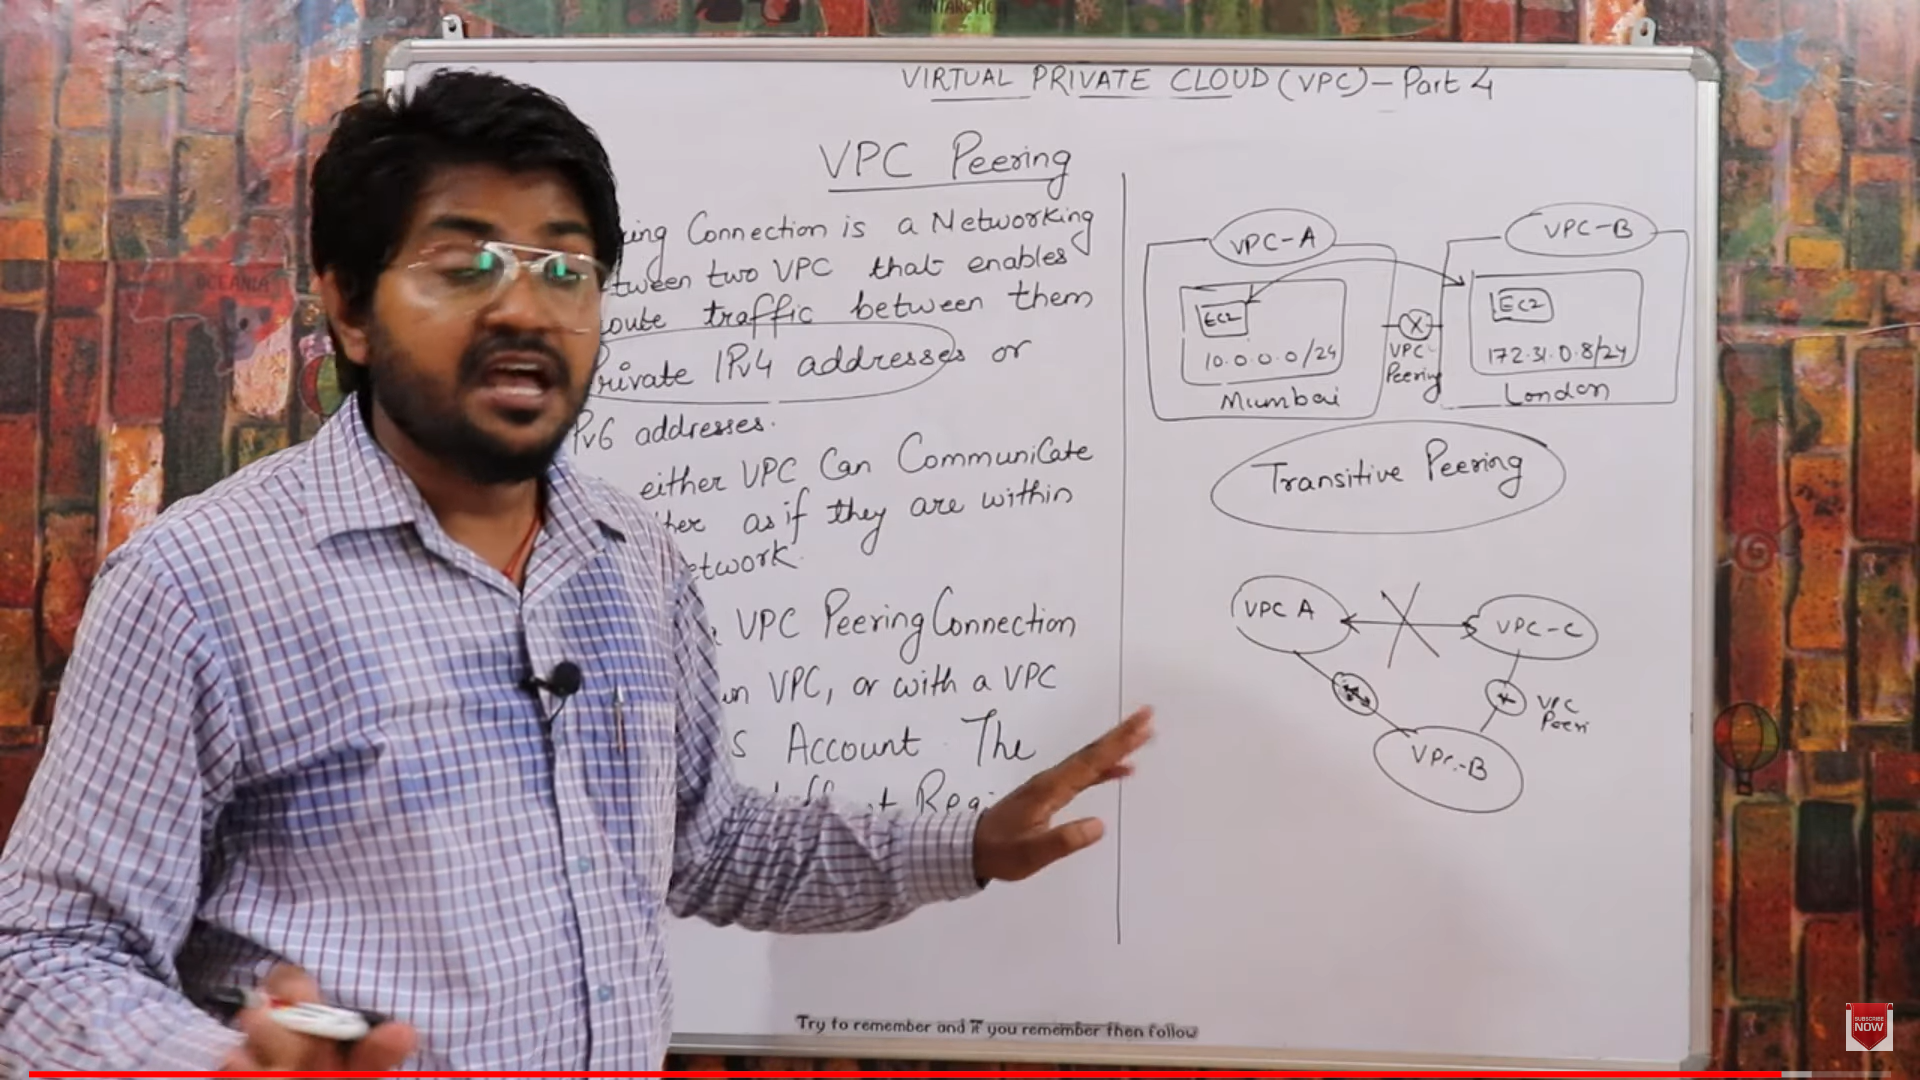 ANTARCTICA
VIRTUAL PRIVATE CLOUD (VPC) - Part 4
VPC Peering
Connection is a Networking
two VPC that enables
traffic between them
Private IPv4 addresses or
IPv6 addresses.
either VPC Can Communicate
as if they are within
VPC Peering Connection
VPC, or with a VPC
Account The
VPC-A
EC2
10.0.0.0/24
Mumbai
VPC-
Peering
VPC-B
EC2
172.31.0.8/24
London
Transitive Peering
VPC A
VPC-C
VPC
Peeri
VPC-B
OCEANIA
Try to remember and if you remember then follow
SUBSCRIBE
NOW